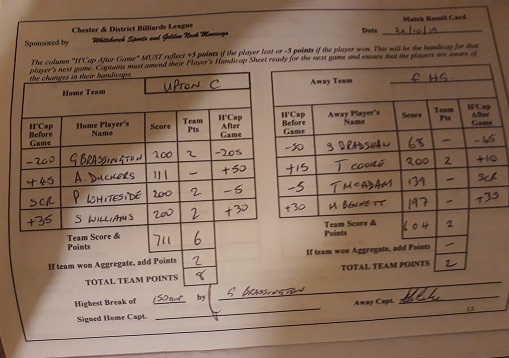 Chester & District Billiards League
Match Result Card
Sponsored by Whitchurch Sports and Golden Nook Moorings
Date 22/10/19
The column "H'Cap After Game" MUST reflect +5 points if the player lost or -5 points if the player won. This will be the handicap for that
player's next game. Captains must amend their Player's Handicap Sheet ready for the next game and ensure that the players are aware of
the changes in their handicaps.
Home Team UPTON C
H'Cap Before Game Home Player's Name Score Team Pts H'Cap After Game
-200 G BRASSINGTON 200 2 -205
+45 A. DUCKERS 111 - +50
SCR P WHITESIDE 200 2 -5
+35 S WILLIAMS 200 2 +30
Team Score & Points 711 6
If team won Aggregate, add Points 2
TOTAL TEAM POINTS 8
Highest Break of by G BRASSINGTON
Signed Home Capt.
Away Team CHS
H'Cap Before Game Away Player's Name Score Team Pts H'Cap After Game
-50 S BRADSHAW 68 - -45
+15 T COOKE 200 2 +10
-5 T MCADAM 139 - SCR
+30 M BENNETT 197 - +35
Team Score & Points 604 2
If team won Aggregate, add Points -
TOTAL TEAM POINTS 2
Away Capt.